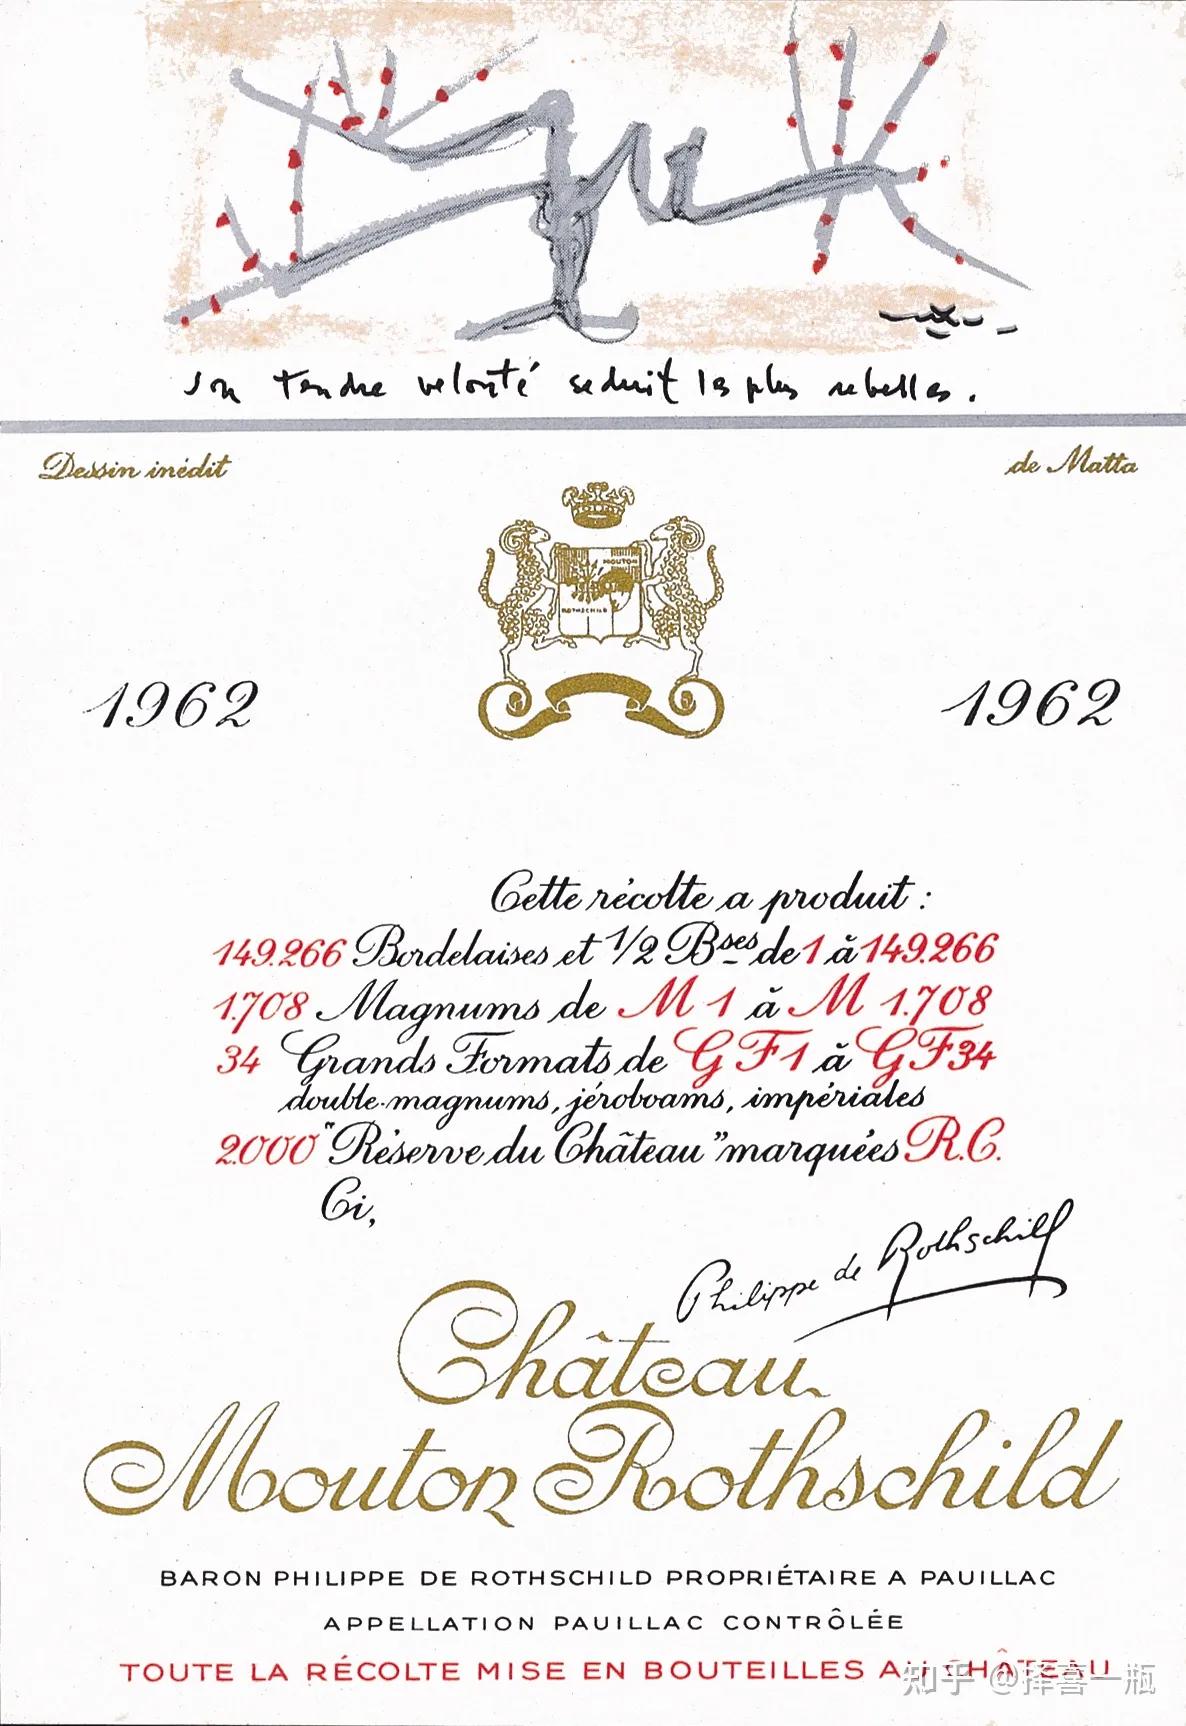 son tendre velouté séduit les plus rebelles.
Dessin inédit de Matta
MOUTON
ROTHSCHILD
1962 1962
Cette récolte a produit :
149.266 Bordelaises et 1/2 Bses de 1 à 149.266
1.708 Magnums de M 1 à M 1.708
34 Grands Formats de G F 1 à G F 34
double-magnums, jéroboams, impériales
2.000 "Réserve du Château" marquées R.C.
Ci,
Philippe de Rothschild
Château
Mouton Rothschild
BARON PHILIPPE DE ROTHSCHILD PROPRIÉTAIRE A PAUILLAC
APPELLATION PAUILLAC CONTRÔLÉE
TOUTE LA RÉCOLTE MISE EN BOUTEILLES AU CHÂTEAU
知乎 @择喜一瓶